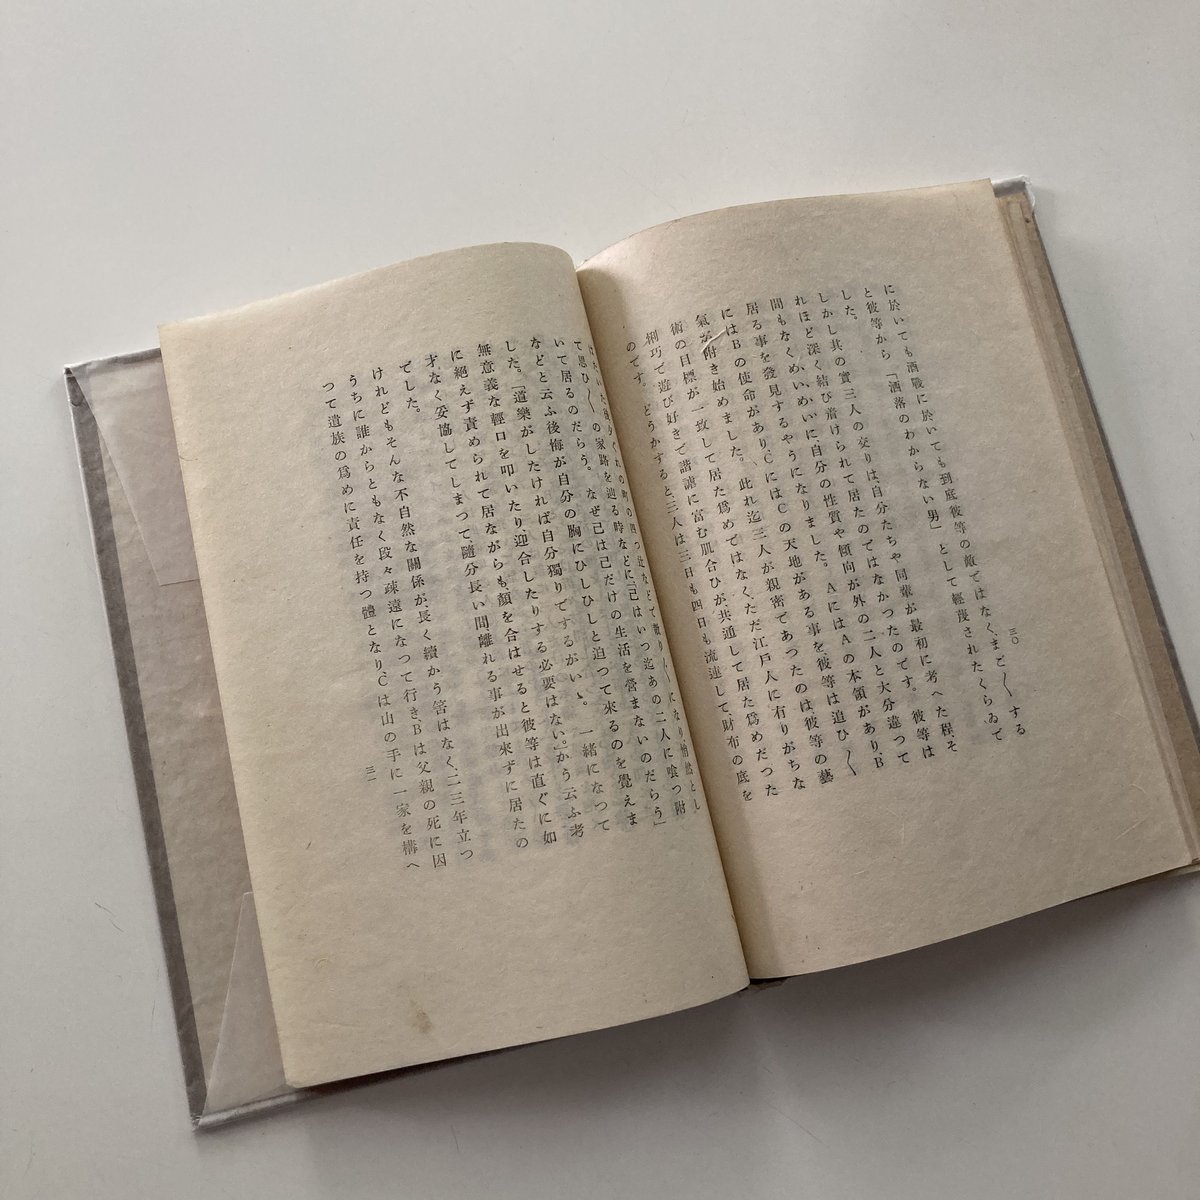 三〇
に於いても酒戰に於いても到底彼等の敵ではなく、まご〱する
と彼等から「洒落のわからない男」として輕蔑されたくらゐで
した。
しかし其の實三人の交りは、自分たちや同輩が最初に考へた程、そ
れほど深く結び着けられて居たのではなかつたのです。彼等は
間もなくめい、めいに自分の性質や傾向が外の二人と大分違つて
居る事を發見するやうになりました。AにはAの本領があり、B
にはBの使命があり、CにはCの天地がある事を、彼等は追ひ〱
氣が附き始めました。此れ迄三人が親密であつたのは彼等の藝
術の目標が一致して居た爲めではなく、ただ江戸人に有りがちな
悧巧で遊び好きで諧謔に富む肌合ひが、共通して居た爲めだつた
のです。どうかすると三人は三日も四日も流連して、財布の底を
になり、悄然とし
て思ひ〱の家路を辿る時などに、「己はいつ迄あの二人に喰つ附
いて居るのだらう。なぜ己は己だけの生活を營まないのだらう」
などと云ふ後悔が自分の胸にひしひしと迫つて來るのを覺えま
した。「道樂がしたければ自分獨りでするがいゝ。一緒になつて
無意義な輕口を叩いたり迎合したりする必要はない。」かう云ふ考
に絕えず責められて居ながらも、顏を合はせると彼等は直ぐに如
才なく妥協してしまつて、隨分長い間離れる事が出來ずに居たの
でした。
けれどもそんな不自然な關係が、長く續かう筈はなく、二三年立つ
うちに誰からともなく段々疎遠になつて行き、Bは父親の死に因
つて遺族の爲めに責任を持つ體となり、Cは山の手に一家を構へ
三一